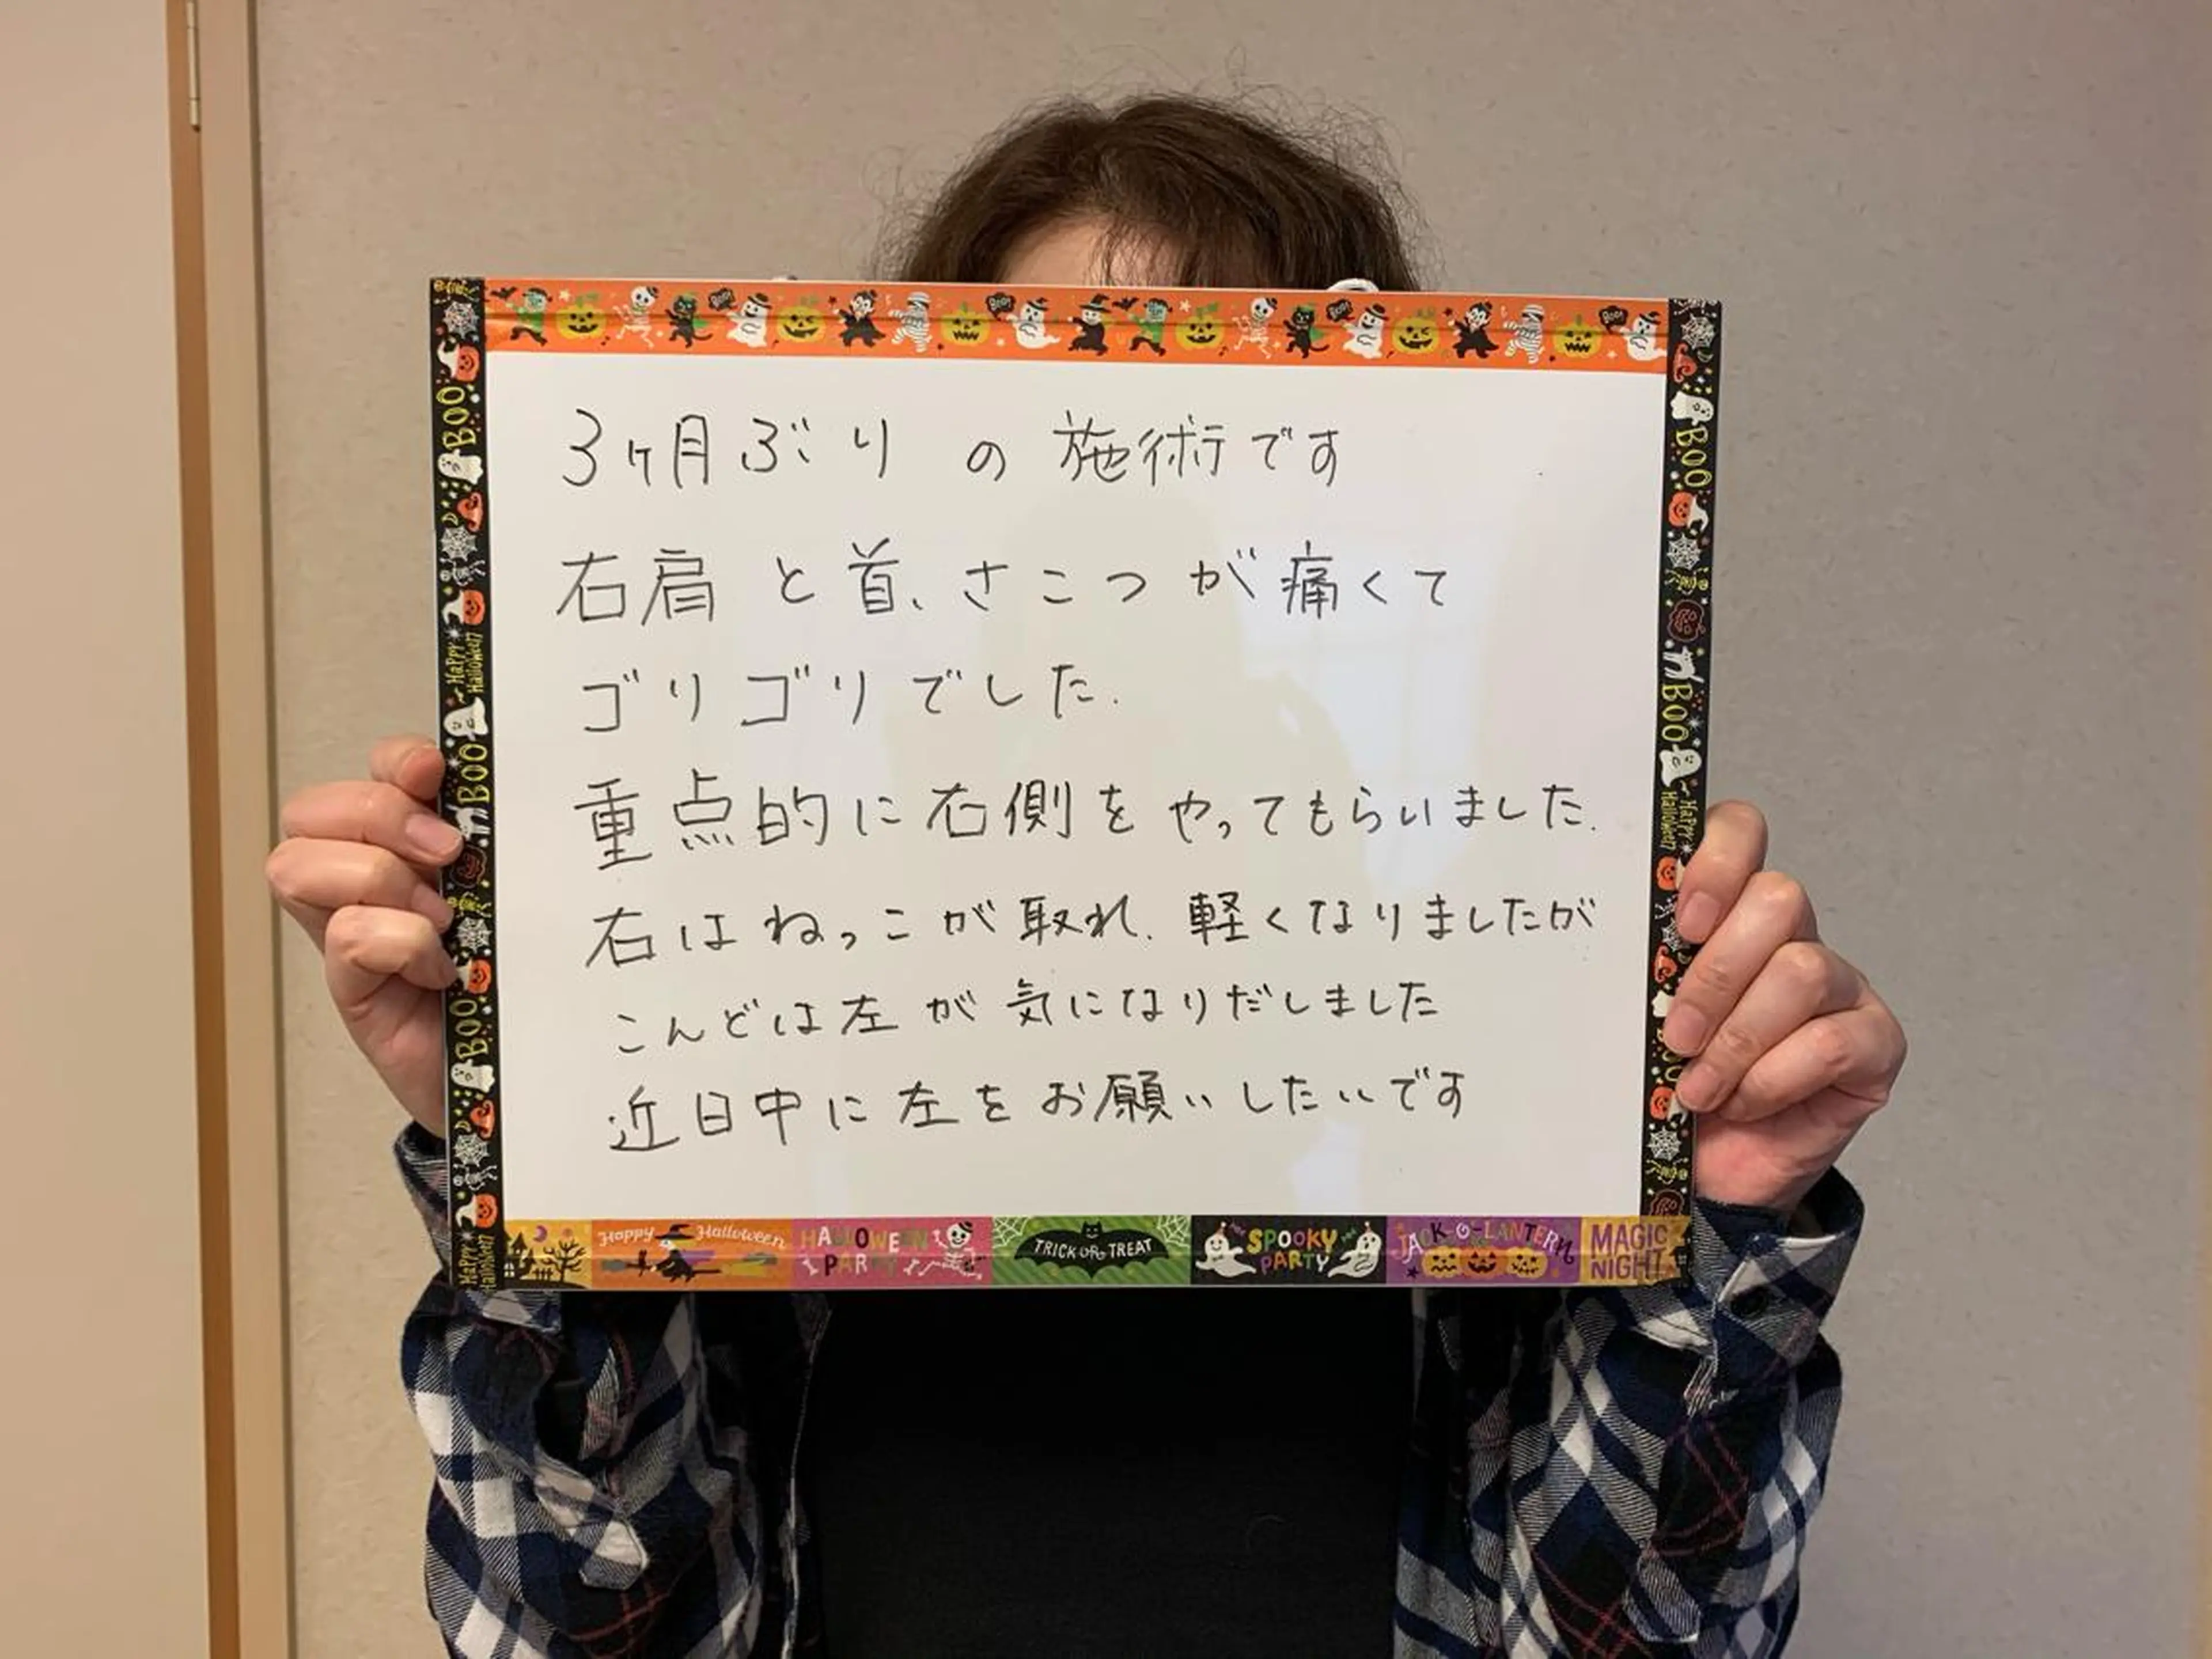 3ヶ月ぶりの施術です
右肩と首、さこつが痛くて
ゴリゴリでした.
重点的に右側をやってもらいました.
右はねっこが取れ、軽くなりましたが
こんどは左が気になりだしました
近日中に左をお願いしたいです
Happy Halloween
HALLOWEEN PARTY
TRICK OR TREAT
SPOOKY PARTY
JACK-O-LANTERN
MAGIC NIGHT
BOO
BOO
BOO
Happy Halloween
Happy Halloween
BOO
BOO
Happy Halloween
BOO